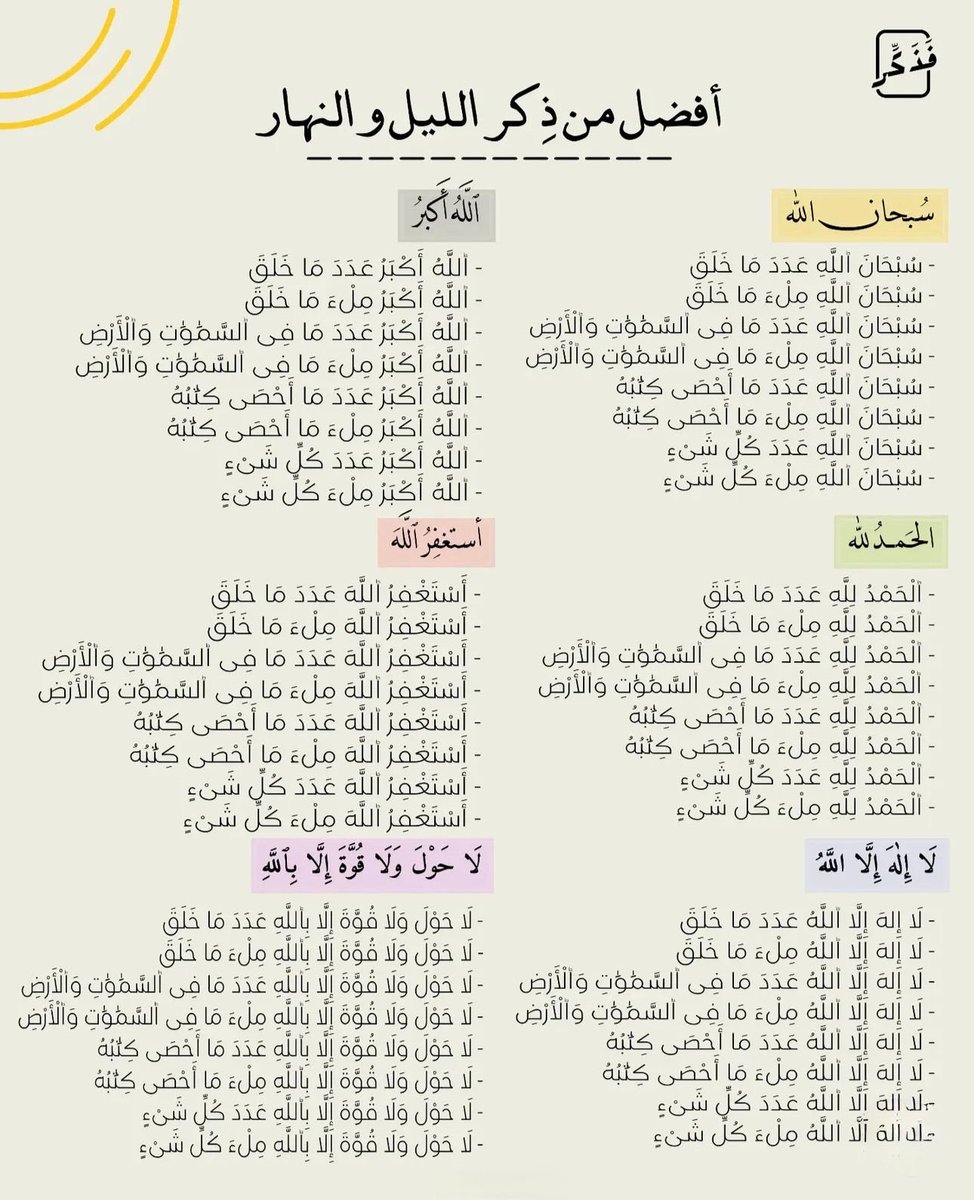 فَذَكِّر
أفضل من ذِكر الليل و النهار
سُبحان الله
- سُبْحَانَ اَللَّهِ عَدَدَ مَا خَلَقَ
- سُبْحَانَ اَللَّهِ مِلْءَ مَا خَلَقَ
- سُبْحَانَ اَللَّهِ عَدَدَ مَا فِى اَلسَّمَٰوَٰتِ وَاَلْأَرْضِ
- سُبْحَانَ اَللَّهِ مِلْءَ مَا فِى اَلسَّمَٰوَٰتِ وَاَلْأَرْضِ
- سُبْحَانَ اَللَّهِ عَدَدَ مَا أَحْصَى كِتَٰبُهُ
- سُبْحَانَ اَللَّهِ مِلْءَ مَا أَحْصَى كِتَٰبُهُ
- سُبْحَانَ اَللَّهِ عَدَدَ كُلِّ شَىْءٍ
- سُبْحَانَ اَللَّهِ مِلْءَ كُلِّ شَىْءٍ
ٱللَّهُ أَكبَرُ
- اَللَّهُ أَكْبَرُ عَدَدَ مَا خَلَقَ
- اَللَّهُ أَكْبَرُ مِلْءَ مَا خَلَقَ
- اَللَّهُ أَكْبَرُ عَدَدَ مَا فِى اَلسَّمَٰوَٰتِ وَاَلْأَرْضِ
- اَللَّهُ أَكْبَرُ مِلْءَ مَا فِى اَلسَّمَٰوَٰتِ وَاَلْأَرْضِ
- اَللَّهُ أَكْبَرُ عَدَدَ مَا أَحْصَى كِتَٰبُهُ
- اَللَّهُ أَكْبَرُ مِلْءَ مَا أَحْصَى كِتَٰبُهُ
- اَللَّهُ أَكْبَرُ عَدَدَ كُلِّ شَىْءٍ
- اَللَّهُ أَكْبَرُ مِلْءَ كُلِّ شَىْءٍ
الحَمدُ لله
- اَلْحَمْدُ لِلَّهِ عَدَدَ مَا خَلَقَ
- اَلْحَمْدُ لِلَّهِ مِلْءَ مَا خَلَقَ
- اَلْحَمْدُ لِلَّهِ عَدَدَ مَا فِى اَلسَّمَٰوَٰتِ وَاَلْأَرْضِ
- اَلْحَمْدُ لِلَّهِ مِلْءَ مَا فِى اَلسَّمَٰوَٰتِ وَاَلْأَرْضِ
- اَلْحَمْدُ لِلَّهِ عَدَدَ مَا أَحْصَى كِتَٰبُهُ
- اَلْحَمْدُ لِلَّهِ مِلْءَ مَا أَحْصَى كِتَٰبُهُ
- اَلْحَمْدُ لِلَّهِ عَدَدَ كُلِّ شَىْءٍ
- اَلْحَمْدُ لِلَّهِ مِلْءَ كُلِّ شَىْءٍ
أستغفِرُ ٱللَّهَ
- أَسْتَغْفِرُ اَللَّهَ عَدَدَ مَا خَلَقَ
- أَسْتَغْفِرُ اَللَّهَ مِلْءَ مَا خَلَقَ
- أَسْتَغْفِرُ اَللَّهَ عَدَدَ مَا فِى اَلسَّمَٰوَٰتِ وَاَلْأَرْضِ
- أَسْتَغْفِرُ اَللَّهَ مِلْءَ مَا فِى اَلسَّمَٰوَٰتِ وَاَلْأَرْضِ
- أَسْتَغْفِرُ اَللَّهَ عَدَدَ مَا أَحْصَى كِتَٰبُهُ
- أَسْتَغْفِرُ اَللَّهَ مِلْءَ مَا أَحْصَى كِتَٰبُهُ
- أَسْتَغْفِرُ اَللَّهَ عَدَدَ كُلِّ شَىْءٍ
- أَسْتَغْفِرُ اَللَّهَ مِلْءَ كُلِّ شَىْءٍ
لَا إِلٰهَ إِلَّا اللَّهُ
- لَا إِلهَ إِلَّا اَللَّهُ عَدَدَ مَا خَلَقَ
- لَا إِلهَ إِلَّا اَللَّهُ مِلْءَ مَا خَلَقَ
- لَا إِلهَ إِلَّا اَللَّهُ عَدَدَ مَا فِى اَلسَّمَٰوَٰتِ وَاَلْأَرْضِ
- لَا إِلهَ إِلَّا اَللَّهُ مِلْءَ مَا فِى اَلسَّمَٰوَٰتِ وَاَلْأَرْضِ
- لَا إِلهَ إِلَّا اَللَّهُ عَدَدَ مَا أَحْصَى كِتَٰبُهُ
- لَا إِلهَ إِلَّا اَللَّهُ مِلْءَ مَا أَحْصَى كِتَٰبُهُ
- لَا إِلهَ إِلَّا اَللَّهُ عَدَدَ كُلِّ شَىْءٍ
- لَا إِلهَ إِلَّا اَللَّهُ مِلْءَ كُلِّ شَىْءٍ
لَا حَوْلَ وَلَا قُوَّةَ إِلَّا بِٱللَّهِ
- لَا حَوْلَ وَلَا قُوَّةَ إِلَّا بِاَللَّهِ عَدَدَ مَا خَلَقَ
- لَا حَوْلَ وَلَا قُوَّةَ إِلَّا بِاَللَّهِ مِلْءَ مَا خَلَقَ
- لَا حَوْلَ وَلَا قُوَّةَ إِلَّا بِاَللَّهِ عَدَدَ مَا فِى اَلسَّمَٰوَٰتِ وَاَلْأَرْضِ
- لَا حَوْلَ وَلَا قُوَّةَ إِلَّا بِاَللَّهِ مِلْءَ مَا فِى اَلسَّمَٰوَٰتِ وَاَلْأَرْضِ
- لَا حَوْلَ وَلَا قُوَّةَ إِلَّا بِاَللَّهِ عَدَدَ مَا أَحْصَى كِتَٰبُهُ
- لَا حَوْلَ وَلَا قُوَّةَ إِلَّا بِاَللَّهِ مِلْءَ مَا أَحْصَى كِتَٰبُهُ
- لَا حَوْلَ وَلَا قُوَّةَ إِلَّا بِاَللَّهِ عَدَدَ كُلِّ شَىْءٍ
- لَا حَوْلَ وَلَا قُوَّةَ إِلَّا بِاَللَّهِ مِلْءَ كُلِّ شَىْءٍ